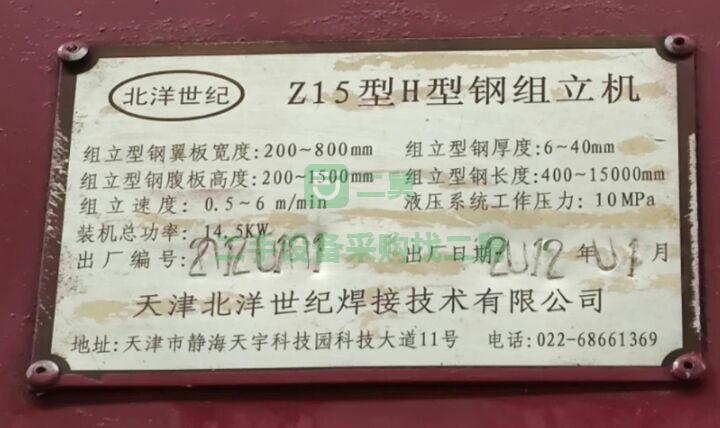 北洋世纪 Z15型H型钢组立机
组立型钢翼板宽度:200~800mm 组立型钢厚度:6~40mm
组立型钢腹板高度:200~1500mm 组立型钢长度:400~15000mm
组立速度: 0.5~6 m/min 液压系统工作压力: 10MPa
装机总功率: 14.5KW
出厂编号: 出厂日期:2012年01月
二手设备采购找二
天津北洋世纪焊接技术有限公司
地址:天津市静海天宇科技园科技大道11号 电话:022-68661369